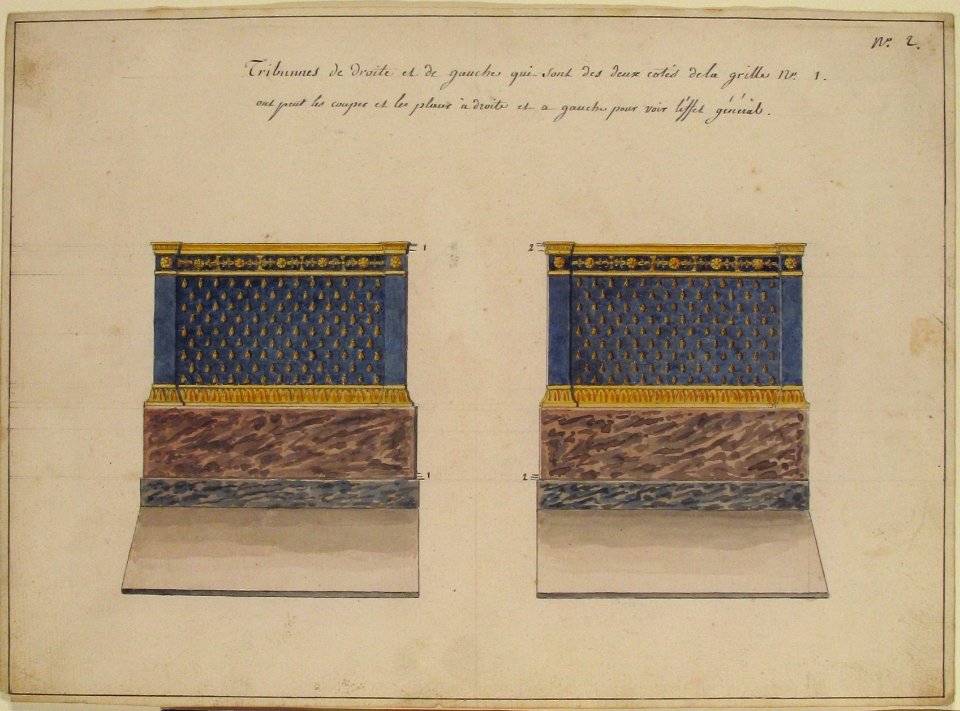 Nº. 2.
Tribunnes de droite et de gauche qui sont des deux cotés de la grille Nº. 1.
ont peut les couper et les placer à droite et a gauche pour voir l'éffet général.
1
2
1
2